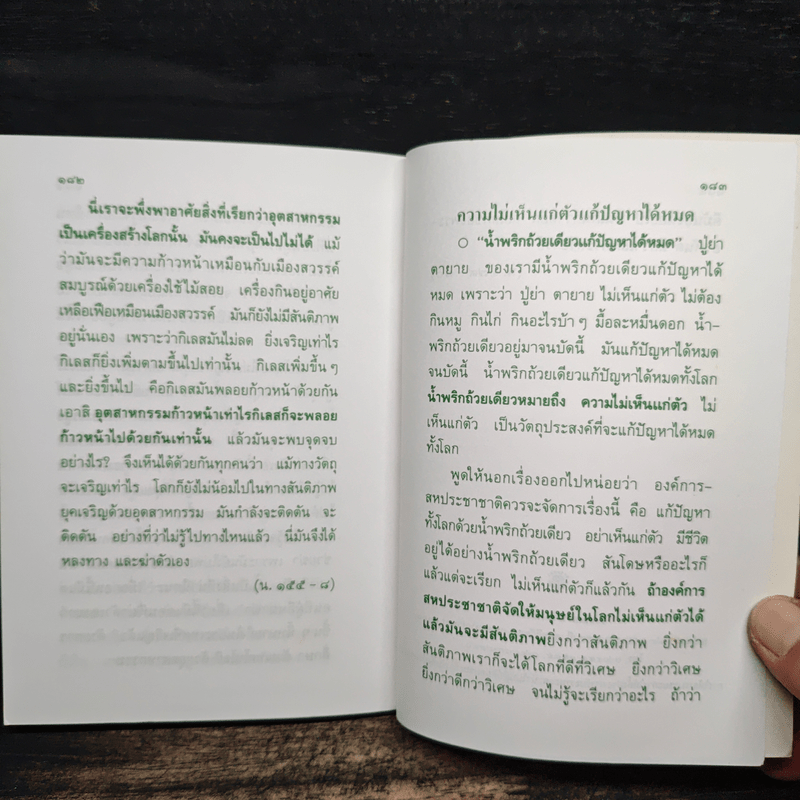 ๑๘๒
นี่เราจะพึ่งพาอาศัยสิ่งที่เรียกว่าอุตสาหกรรม
เป็นเครื่องสร้างโลกนั้น มันคงจะเป็นไปไม่ได้ แม้
ว่ามันจะมีความก้าวหน้าเหมือนกับเมืองสวรรค์
สมบูรณ์ด้วยเครื่องใช้ไม้สอย เครื่องกินอยู่อาศัย
เหลือเฟือเหมือนเมืองสวรรค์ มันก็ยังไม่มีสันติภาพ
อยู่นั่นเอง เพราะว่ากิเลสมันไม่ลด ยิ่งเจริญเท่าไร
กิเลสก็ยิ่งเพิ่มตามขึ้นไปเท่านั้น กิเลสเพิ่มขึ้น ๆ
และยิ่งขึ้นไป คือกิเลสมันพลอยก้าวหน้าด้วยกัน
เอาสิ อุตสาหกรรมก้าวหน้าเท่าไรกิเลสก็จะพลอย
ก้าวหน้าไปด้วยกันเท่านั้น แล้วมันจะพบจุดจบ
อย่างไร? จึงเห็นได้ด้วยกันทุกคนว่า แม้ทางวัตถุ
จะเจริญเท่าไร โลกก็ยังไม่น้อมไปในทางสันติภาพ
ยุคเจริญด้วยอุตสาหกรรม มันกำลังจะติดตัน จะ
ติดตัน อย่างที่ว่าไม่รู้ไปทางไหนแล้ว นี่มันจึงได้
หลงทาง และฆ่าตัวเอง
(น. ๑๕๕ - ๘)
๑๘๓
ความไม่เห็นแก่ตัวแก้ปัญหาได้หมด
○ “น้ำพริกถ้วยเดียวแก้ปัญหาได้หมด” ปู่ย่า
ตายาย ของเรามีน้ำพริกถ้วยเดียวแก้ปัญหาได้
หมด เพราะว่า ปู่ย่า ตายาย ไม่เห็นแก่ตัว ไม่ต้อง
กินหมู กินไก่ กินอะไรบ้า ๆ มื้อละหมื่นดอก น้ำ-
พริกถ้วยเดียวอยู่มาจนบัดนี้ มันแก้ปัญหาได้หมด
จนบัดนี้ น้ำพริกถ้วยเดียวแก้ปัญหาได้หมดทั้งโลก
น้ำพริกถ้วยเดียวหมายถึง ความไม่เห็นแก่ตัว ไม่
เห็นแก่ตัว เป็นวัตถุประสงค์ที่จะแก้ปัญหาได้หมด
ทั้งโลก
พูดให้นอกเรื่องออกไปหน่อยว่า องค์การ-
สหประชาชาติควรจะจัดการเรื่องนี้ คือ แก้ปัญหา
ทั้งโลกด้วยน้ำพริกถ้วยเดียว อย่าเห็นแก่ตัว มีชีวิต
อยู่ได้อย่างน้ำพริกถ้วยเดียว สันโดษหรืออะไรก็
แล้วแต่จะเรียก ไม่เห็นแก่ตัวก็แล้วกัน ถ้าองค์การ
สหประชาชาติจัดให้มนุษย์ในโลกไม่เห็นแก่ตัวได้
แล้วมันจะมีสันติภาพยิ่งกว่าสันติภาพ ยิ่งกว่า
สันติภาพเราก็จะได้โลกที่ดีที่วิเศษ ยิ่งกว่าวิเศษ
ยิ่งกว่าดีกว่าวิเศษ จนไม่รู้จะเรียกว่าอะไร ถ้าว่า